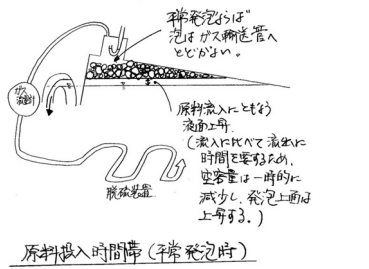 平常発泡ならば
泡はガス輸送管へ
とどかない。
ガス
流量計
原料流入にともなう
液面上昇.
(流入に比べて流出に
時間を要するため、
空容量は一時的に
減少し、発泡上面は
上昇する。)
脱硫装置
原料投入時間帯(平常発泡時)